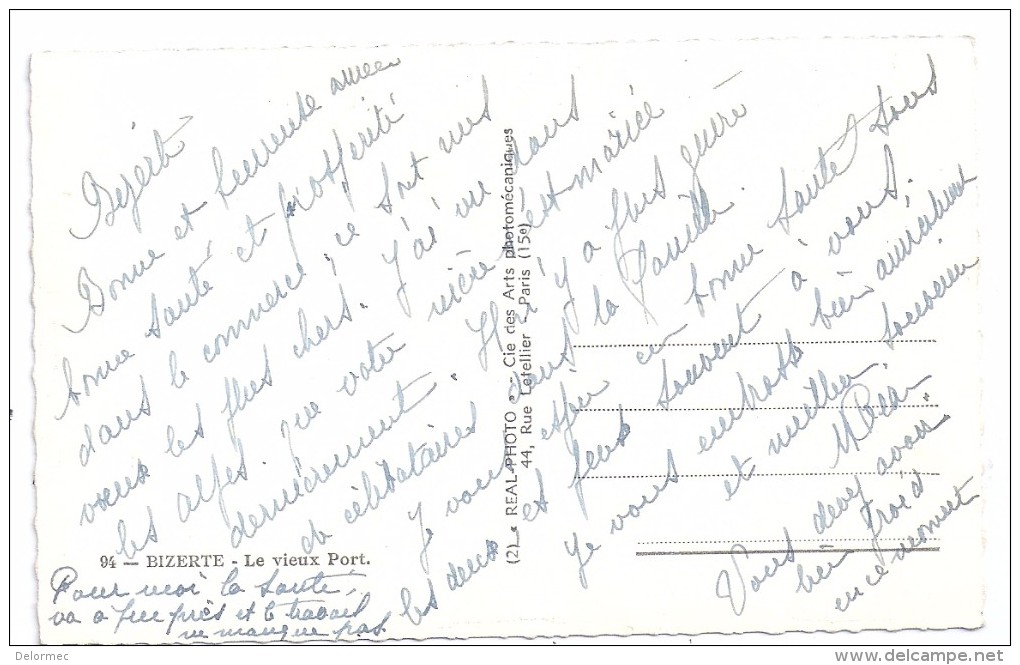 Bizerte
Bonne et heureuse année
bonne santé et prosperité
dans le commerce, ce sont mes
voeux les plus chers. J'ai vu dans
les que votre nièce est mariée
dernièrement. Il n'y a plus guère
de célibataires dans la famille.
Je vous espère en bonne santé tous
les deux et pense souvent à vous.
Je vous embrasse bien amicalement
et meilleur souvenir
Vous devez avoir
bien froid
en ce moment
Pour moi la santé
va à peu près et le travail
ne manque pas
94 — BIZERTE - Le vieux Port.
(2) « REAL-PHOTO » - Cie des Arts photomécaniques
44, Rue Letellier - Paris (15e)
Delormec
http://www.delcampe.net